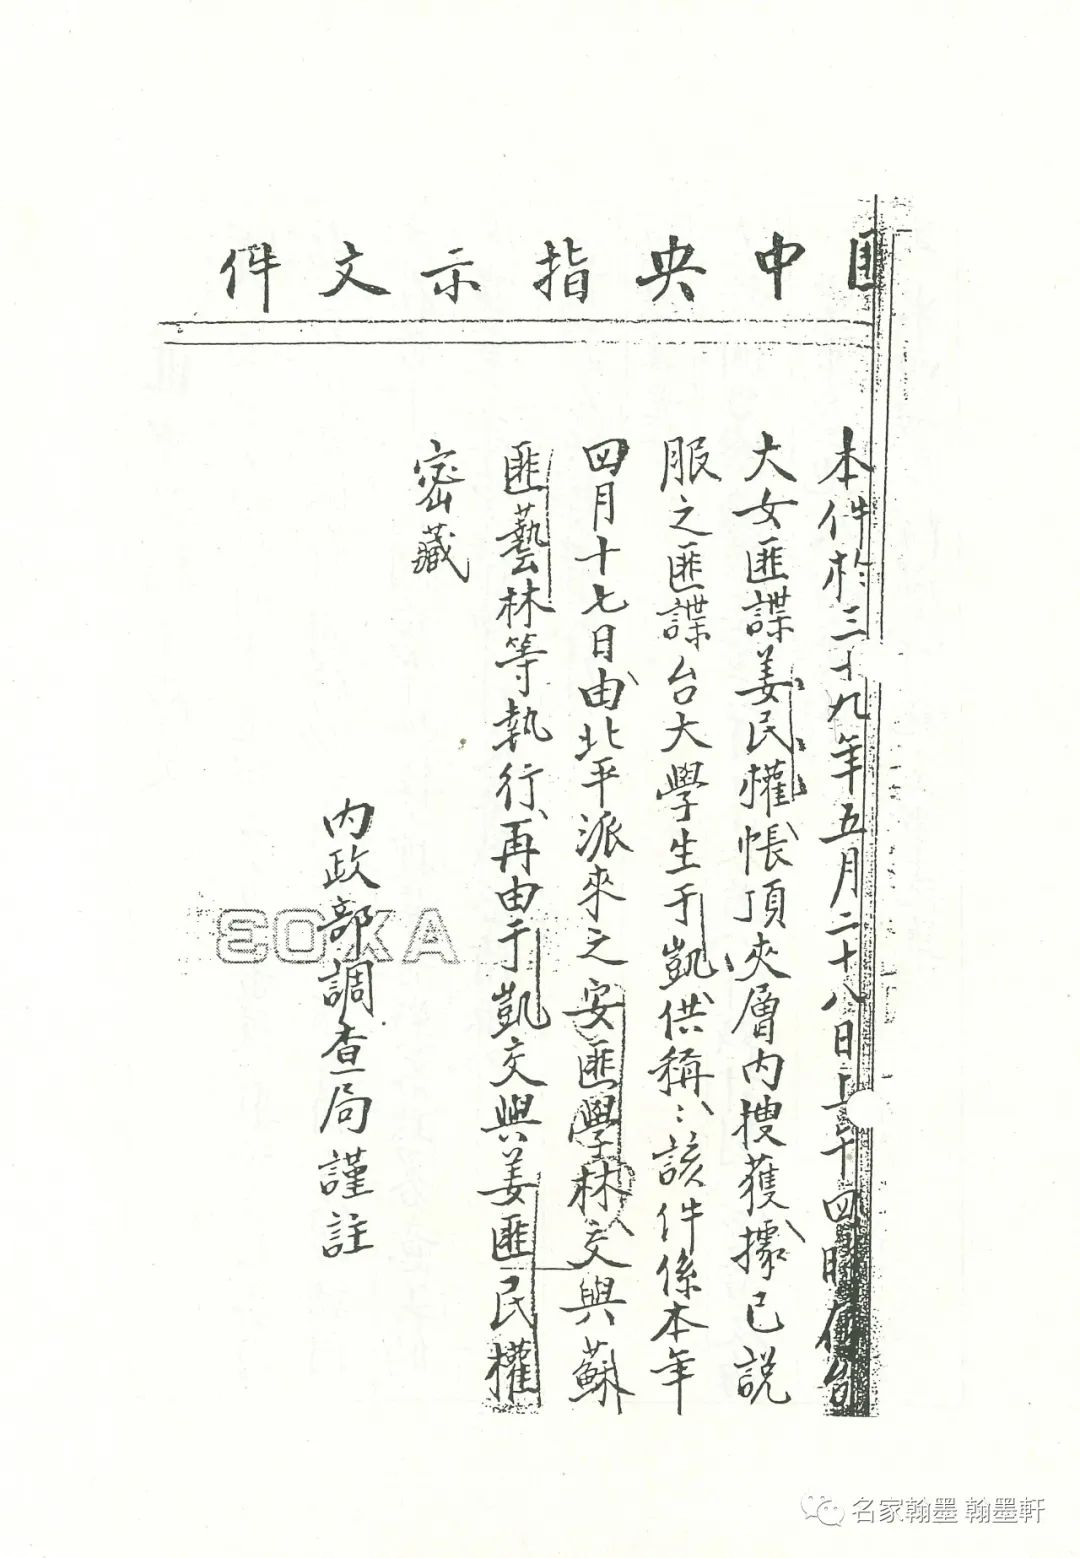 匪中央指示文件
本件於三十九年五月二十八日二十四時在台
大女匪諜姜民權帳頂夾層內搜獲據已說
服之匪諜台大學生于凱供稱：該件係本年
四月十七日由北平派來之安匪學林交與蘇
匪藝林等執行再由于凱交與姜匪民權
密藏
內政部調查局謹註
AKO3
名家翰墨 翰墨軒